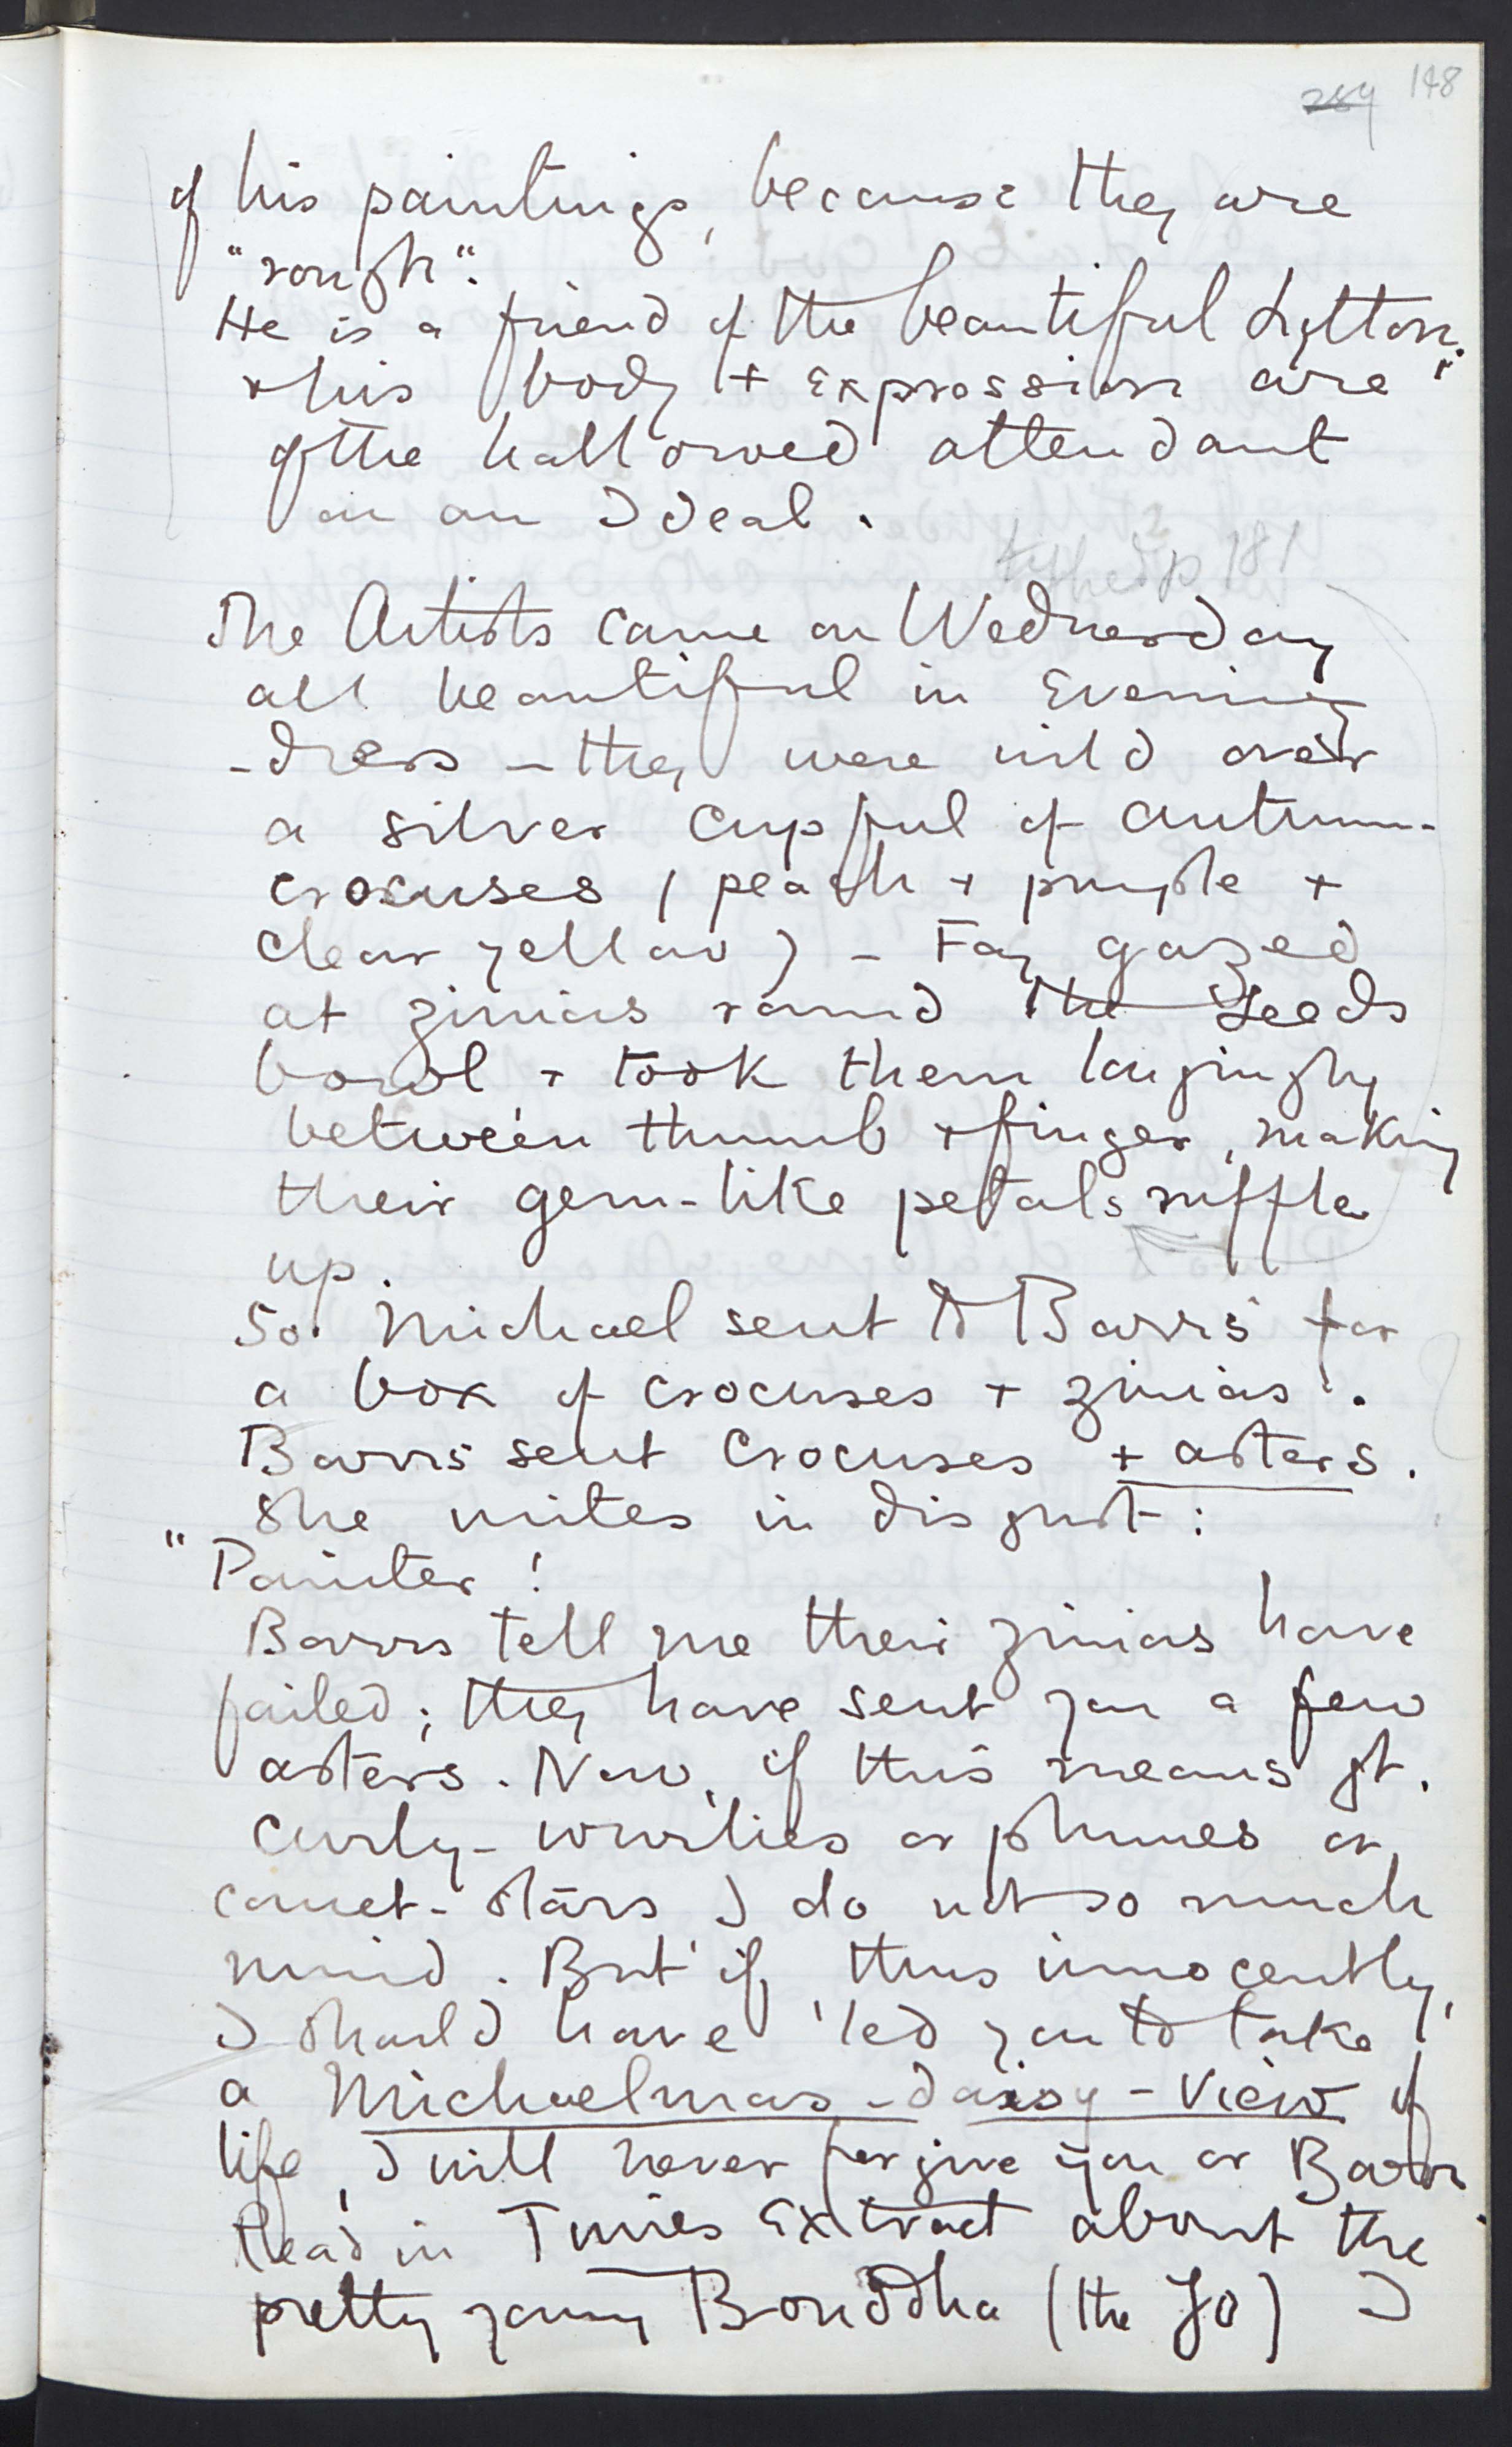 284 148
of his paintings, because they are
"rough".
He is a friend of the beautiful Lytton.
& his body + expression are
of the hallowed attendant
on an Ideal.
p 181
The Artists came on Wednesday
all beautiful in Evening
-dress - they were wild over
a silver cupful of autumn-
crocuses (peach + purple +
clear yellow) - Fay gazed
at zinias round the Leeds
bowl + took them longingly
between thumb + finger, making
their gem-like petals ruffle
up.
So Michael sent to Barrs for
a box of crocuses + zinias.
Barrs sent Crocuses + asters.
She writes in disgust:
"Painter!
Barrs tell me their zinias have
failed; they have sent you a few
asters. Now, if this means gt.
curly-wurlies or plumes or
comet-stars I do not so much
mind. But if thus innocently,
I should have led you to take
a Michaelmas-daisy-view of
life, I will never forgive you or Barr
Read in Times Extract about the
pretty young Bouddha (the Jo) I